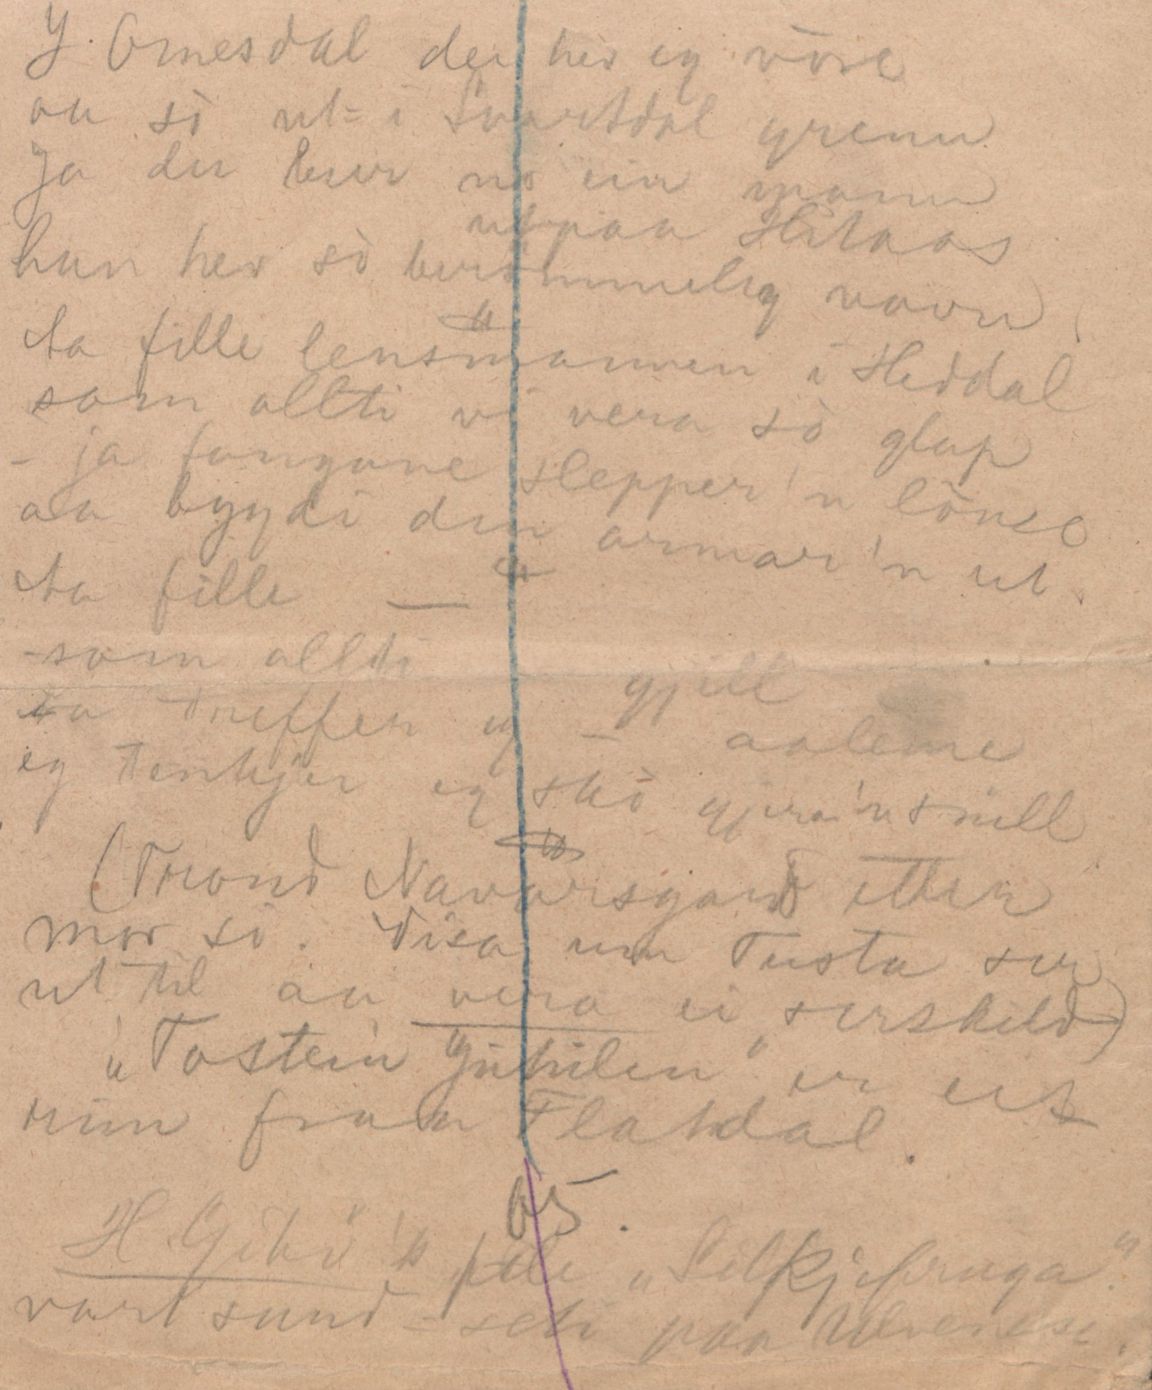 Y. Omesdal der hev eg vöre
au sò ut i Svartdal grenn
Ja der bur no ein mann
utpaa Hitaas
han hev sò berömmelig navn
ta fille lensmannen i Heddal
som allti vi vera sò glup
- ja fangane slepper'n lönse
aa bygdi den armar'n ut.
ta fille —
- som allti gjill
ta treffer eg – aaleine
eg tenkjer eg skò gjera'n snill
(Trond Navarsgard etter
mor si. Visa um Tusta ser
ut til aa vera ei serskild)
"Tostein Juhilen" er eit
rim fraa Flatdal.
65.
H. Gibö's fele "Silkjefruga"
vart sund - seti paa Ulvenese.